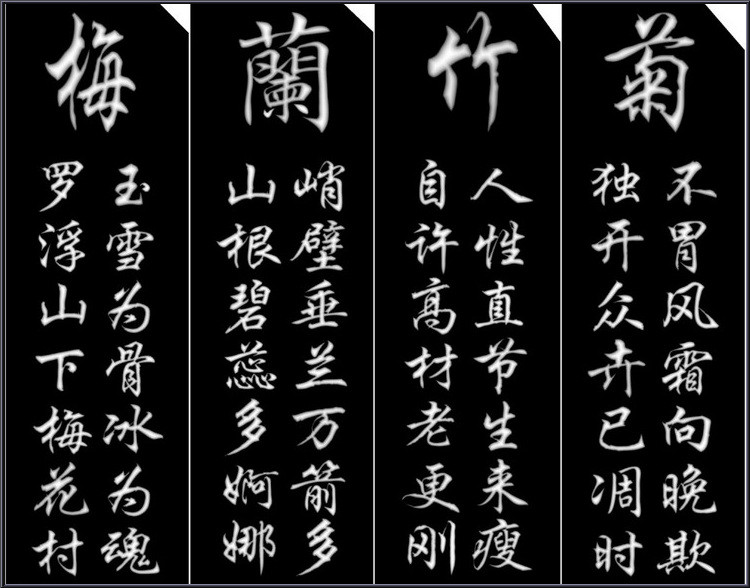 梅
罗浮山下梅花村
玉雪为骨冰为魂
蘭
峭壁垂兰万箭多
山根碧蕊多婀娜
竹
人性直节生来瘦
自许高材老更刚
菊
不胃风霜向晚欺
独开众卉已凋时